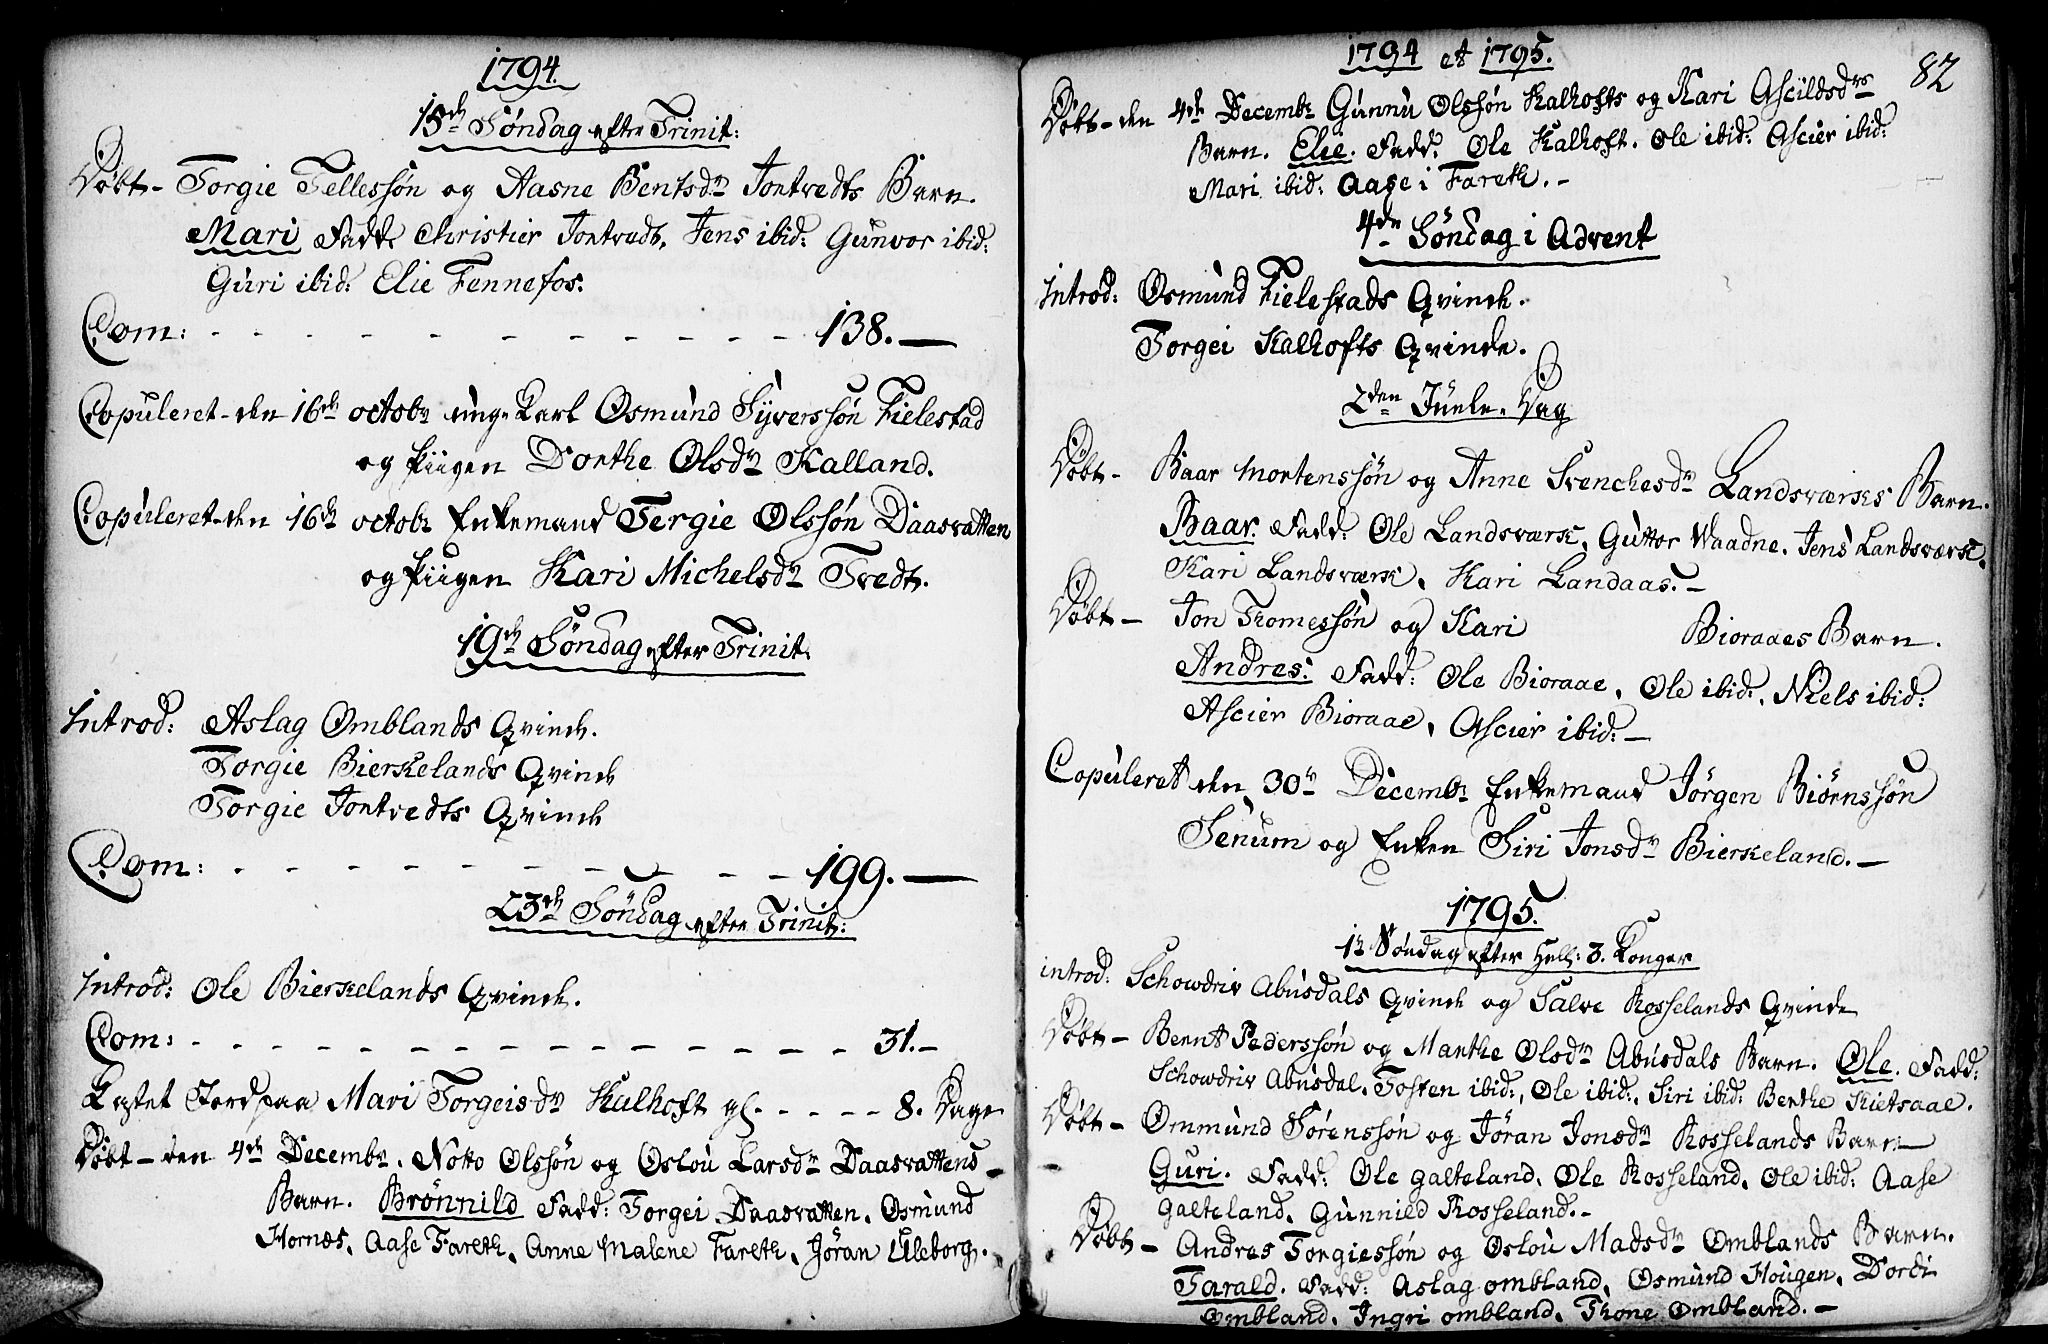 1794.
15de Søndag efter Trinit:
Døbt – Torgie Tellessøn og Aasne Bentsdr Jontvedts Barn.
Mari Fadd. Christier Jontvedt, Jens ibid: Gunvor ibid:
Guri ibid: Elie Fennefos.
Com: - - - - - - - - - - - 138. —
Copuleret – den 16de octobr unge Karl Osmund Syverssøn Fielestad
og Piigen Dorthe Olsdr Kalland.
Copuleret – den 16de octobr Enkemand Tergie Olssøn Daasvatten
og Piigen Kari Michelsdr Tvedt.
19de Søndag efter Trinit:
Introd: Aslag Omblands Qvinde.
Torgie Bierkelands Qvinde
Torgie Jontvedts Qvinde
Com: - - - - - - - - - - - 199. —
23de Søndag efter Trinit:
Introd: Ole Bierkelands Qvinde.
Com: - - - - - - - - - - - - - - 31. –
Kastet Jord paa Mari Torgeisdr Kalhoft gl. - - - - - 8. Dage
Døbt – den 4de Decembr. Notto Olssøn og Oslou Larsdr Daasvattens
Barn. Brønnild Fadd: Torgei Daasvatten. Osmund
Hornæs, Aase Fareth, Anne Malene Fareth, Jøran Uleborg.
1794 et 1795.
82
Døbt – den 4de Decembr Gunnu Olssøn Kalhofts og Kari Ascildsdr
Barn. Elie. Fadd. Ole Kalhoft. Ole ibid: Ascier ibid:
Mari ibid: Aase i Fareth. –
4de Søndag i Advent
Introd: Osmund Fielestads Qvinde.
Torgei Kalhofts Qvinde.
2den Juele-Dag
Døbt – Baar Mortenssøn og Anne Svenchesdr Landsværks Barn.
Baar. Fadd: Ole Landsværk, Guttor Waadne. Jens Landsværk.
Kari Landsværk, Kari Landaas. –
Døbt – Jon Tomessøn og Kari Bioraaes Barn.
Andres: Fadd: Ole Bioraae, Ole ibid: Niels ibid:
Ascier Bioraae, Ascier ibid: –
Copuleret den 30te Decembr Enkemand Jørgen Biørnssøn
Senum og Enken Siri Jonsdr Bierkeland. –
1795.
1te Søndag efter Hell: 3. Konger
introd: Schowdriv Abusdals Qvinde og Salve Rosselands Qvinde
Døbt – Bernt Pederssøn og Marthe Olsdr Abusdals Barn. Ole. Fadd:
Schowdriv Abusdal, Tosten ibid:, Ole ibid:, Siri ibid: Berthe Kietsaae.
Døbt – Ommund Sørenssøn og Jøran Jonsdr Rosselands Barn –
Guri. Fadd: Ole Galteland, Ole Rosseland, Ole ibid: Aase
Galteland, Gunnild Rosseland. –
Døbt – Andres Torgiessøn og Oslou Madsdr Omblands Barn.
Tarald. Fadd: Aslag Ombland, Osmund Hougen, Dordi
Ombland, Ingri Ombland, Thone Ombland. –